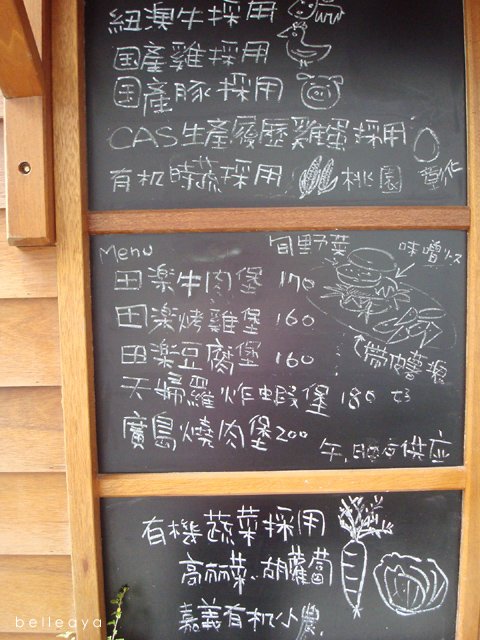 紐澳牛採用
国產雞採用
国產豚採用
CAS生產履歷雞蛋採用
有机時蔬採用 桃園 彰化
Menu
旬野菜
味噌ソース
田楽牛肉堡 170
田楽烤雞堡 160
田楽豆腐堡 160
帶皮薯條
天婦羅炸蝦堡 180
廣島燒肉堡 200
午、晚夕供应
有機蔬菜採用
高麗菜、胡蘿蔔
嘉義有机小農
belleaya